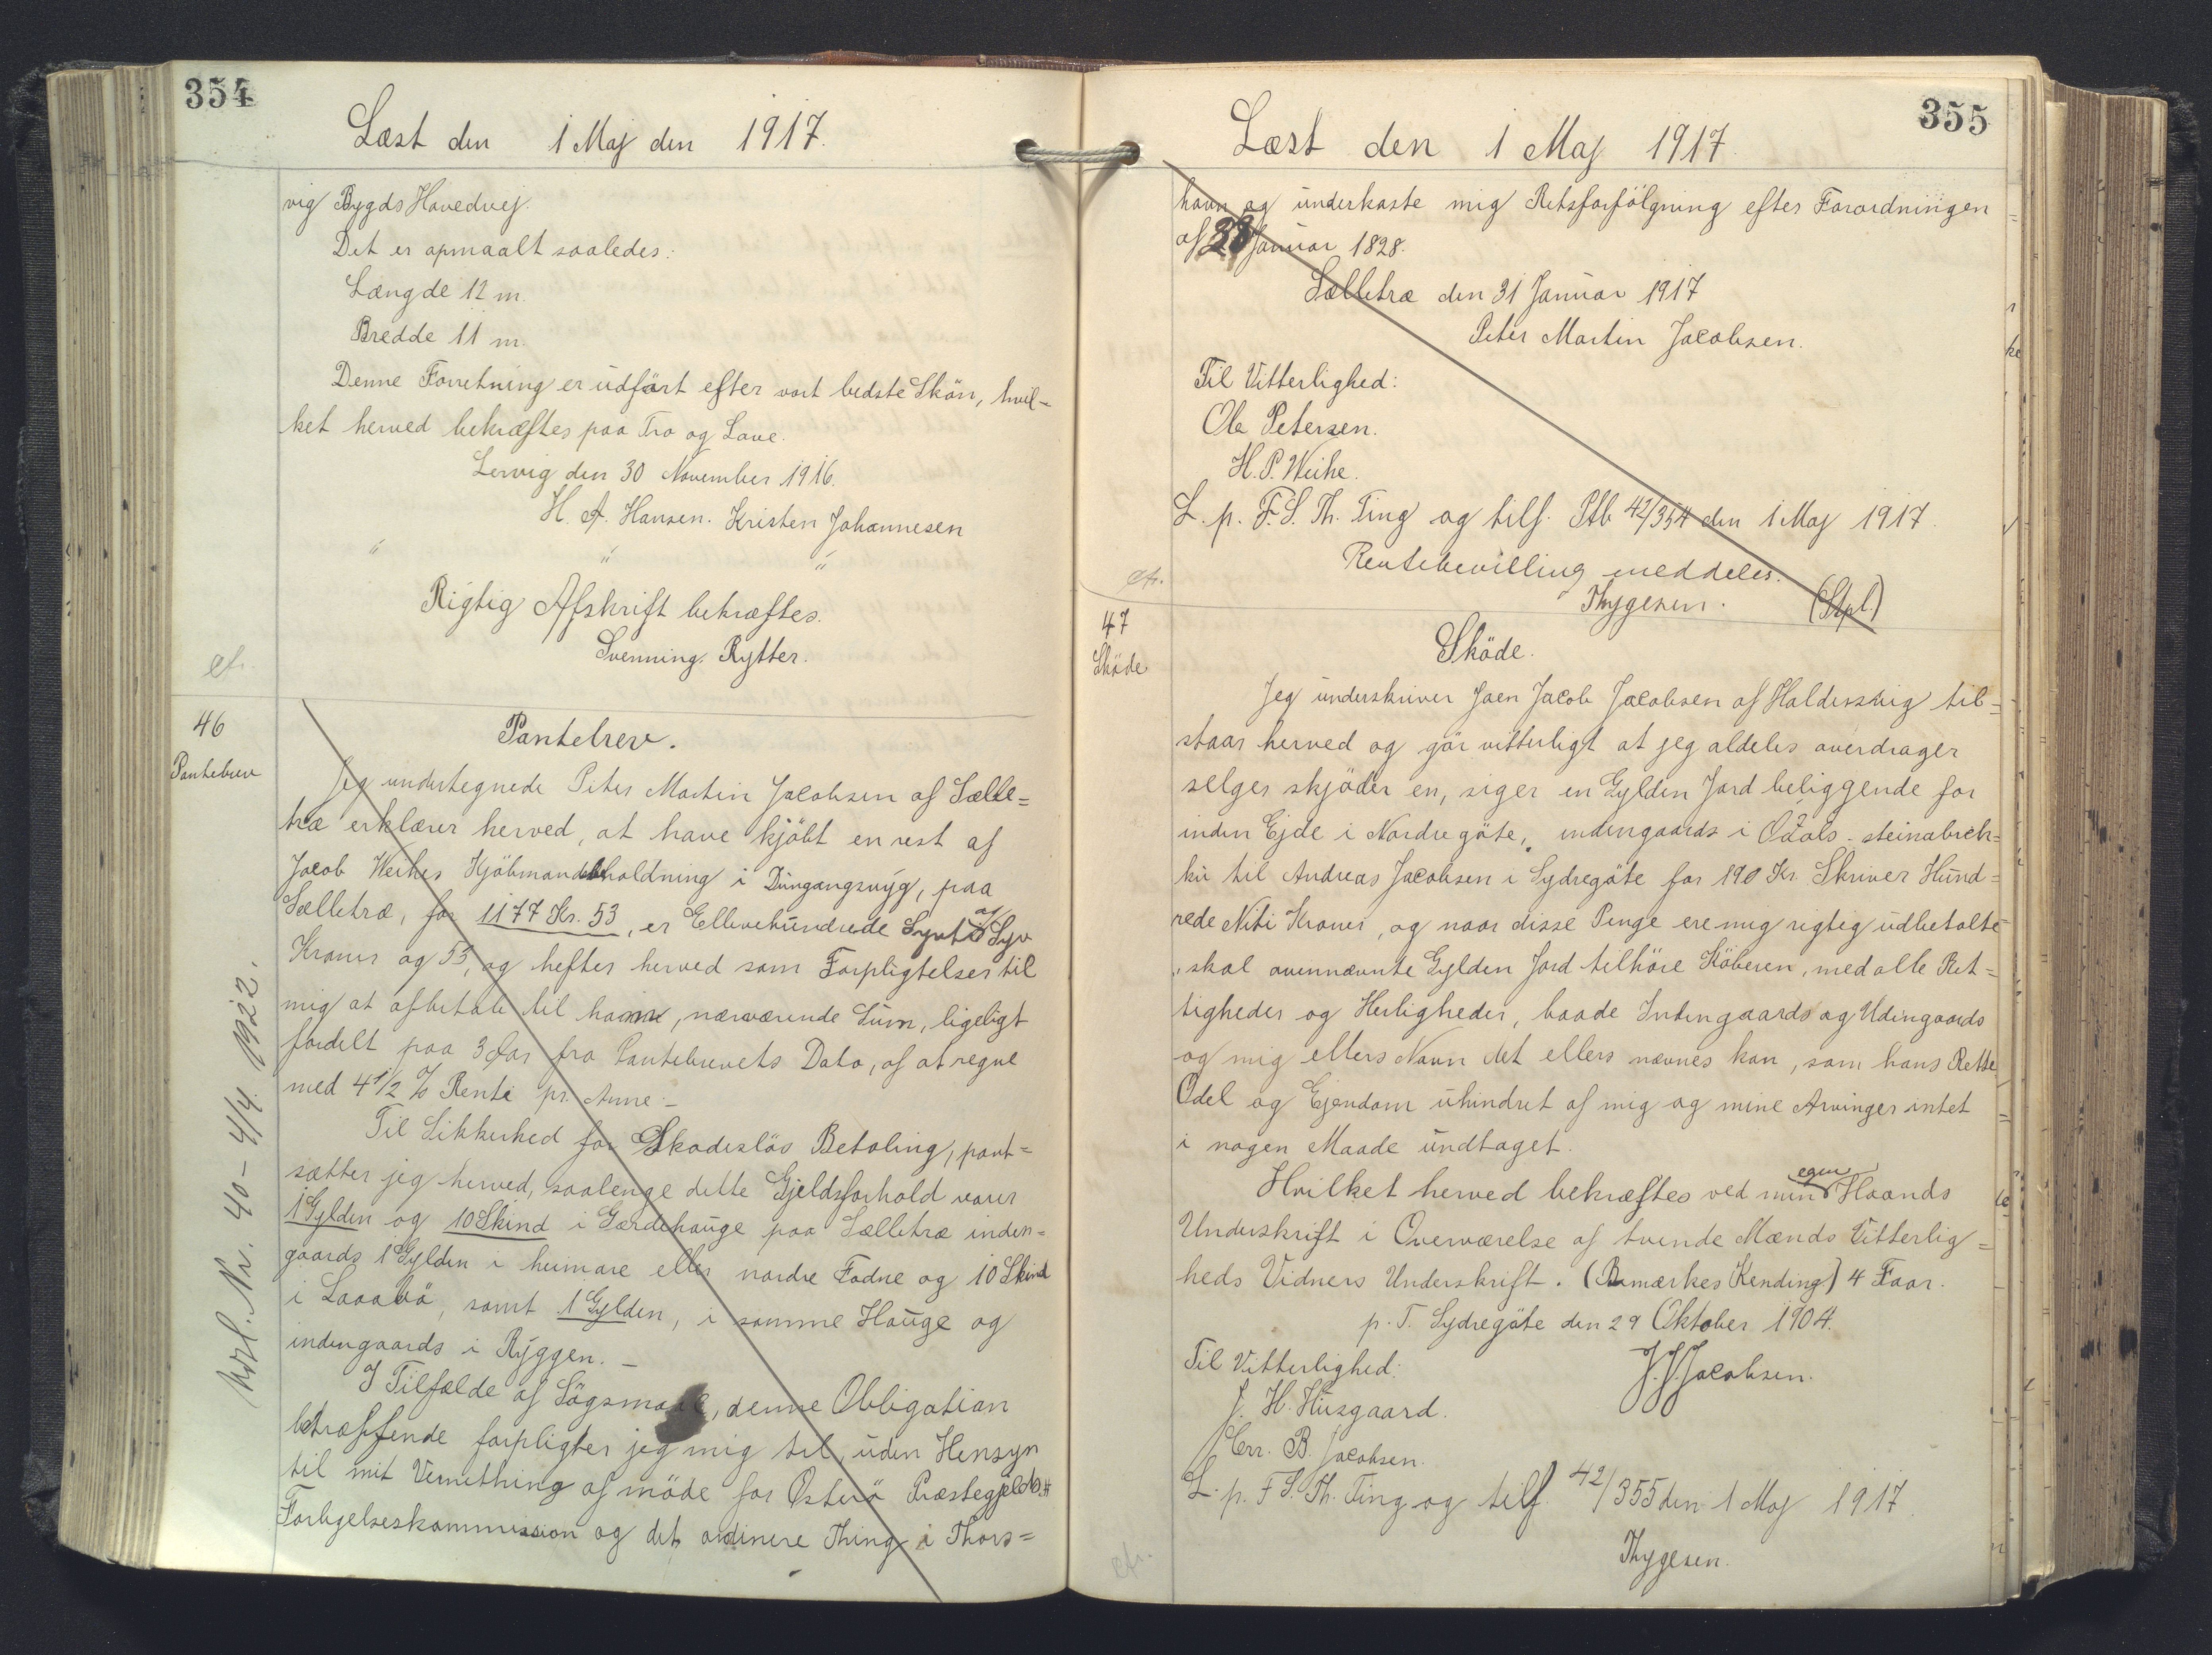 354
Læst den 1 Maj den 1917.
vig Bygds Hovedvej.
Det er opmaalt saaledes:
Længde 12 m.
Bredde 11 m.
Denne Forretning er udført efter vort bedste Skön, hvil-
ket herved bekræftes paa Tro og Love.
Lervig den 30 November 1916.
H. A. Hansen. Kristen Johannesen
" " "
Rigtig Afskrift bekræftes.
Svenning Rytter.
cfr.
46
Pantebrev
Pantebrev.
Jeg undertegnede Peter Martin Jacobsen af Sælle=
træ erklærer herved, at have kjöbt en rest af
Jacob Weihes Kjöbmandsbeholdning i , paa
Sælletræ, for 1177 Kr. 53, er Ellevehundrede Syvti og Syv
Kroner og 53, og hefter herved som Forpligtelser til
mig at afbetale til hamm, nærværende Sum, ligeligt
fordelt paa 3 Aar fra Pantebrevets Dato, af at regne
med 4 1/2 % Rente pr. Anne.-
Til Sikkerhed for Skadeslös Betaling, pant=
sætter jeg herved, saalenge dette Gjeldsforhold varer
1 Gylden og 10 Skind i Gærdehauge paa Sælletræ inden=
gaards 1 Gylden i heimare eller nordre Fodne og 10 Skind
i , samt 1 Gylden, i samme Hauge og
indengaards i Ryggen. -
I Tilfælde af Sögsmaal, denne Obligation
betræffende forpligter jeg mig til, uden Hensyn
til mit Vernething af möde for Österö Præstegjelds
Forligelseskommission og det ordinere Thing i Thors=
Nr. 40 - 4/4 1922.
355
Læst den 1 Maj 1917.
havn og underkaste mig Retsforfölgning efter Forordningen
af 28 Januar 1828.
Sælletræ den 31 Januar 1917
Peter Martin Jacobsen.
Til Vitterlighed:
Ole Petersen.
H. P. Weihe.
L. p. F. S. Th. Ting og tilf. Ptb 42/354 den 1 Maj 1917.
Rentebevilling meddeles.
Thygesen. (Stpl.)
cfr.
47
Sköde
Sköde.
Jeg underskriver Joen Jacob Jacobsen af Haldersvig til=
staar herved og gör vitterligt at jeg aldeles overdrager
selger skjöder en, siger en Gylden Jord beliggende for
inden Ejde i Nordregöte, indengaards i - steinabrek=
ku til Andreas Jacobsen i Sydregöte for 190 Kr. Skriver Hund=
rede Niti Kroner, og naar disse Penge ere mig rigtig udbetalte
skal ovennævnte Gylden Jord tilhöre Köberen, med alle Ret=
tigheder og Herligheder, baade Indengaards og Udengaards
og mig ellers Navn det ellers nævnes kan, som hans Rette
Odel og Ejendom uhindret af mig og mine Arvinger intet
i nogen Maade undtaget.
Hvilket herved bekræftes ved min egen Haands
Underskrift i Overværelse af tvende Mænds Vitterlig=
heds Vidners Underskrift. (Bemærkes Kending) 4 Faar.
p. T. Sydregöte den 29 Oktober 1904.
Til Vitterlighed: J. J. Jacobsen.
J. H. Húsgaard.
Chr. B. Jacobsen.
L. p. F. S. Th. Ting og tilf. 42/355 den 1 Maj 1917.
Thygesen.
cfr.